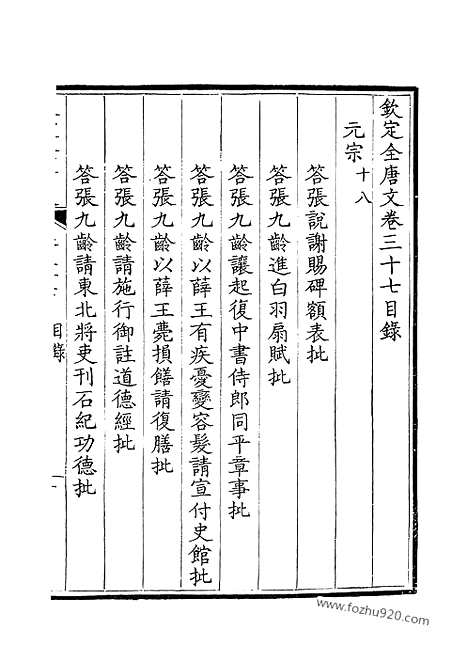 欽定全唐文卷三十七目錄
元宗十八
答張說謝賜碑額表批
答張九齡進白羽扇賦批
答張九齡讓起復中書侍郎同平章事批
答張九齡以薛王有疾憂變容髮請宣付史館批
答張九齡以薛王薨損饍請復膳批
答張九齡請施行御註道德經批
答張九齡請東北將吏刊石紀功德批
目錄
一
www.fozhu920.com